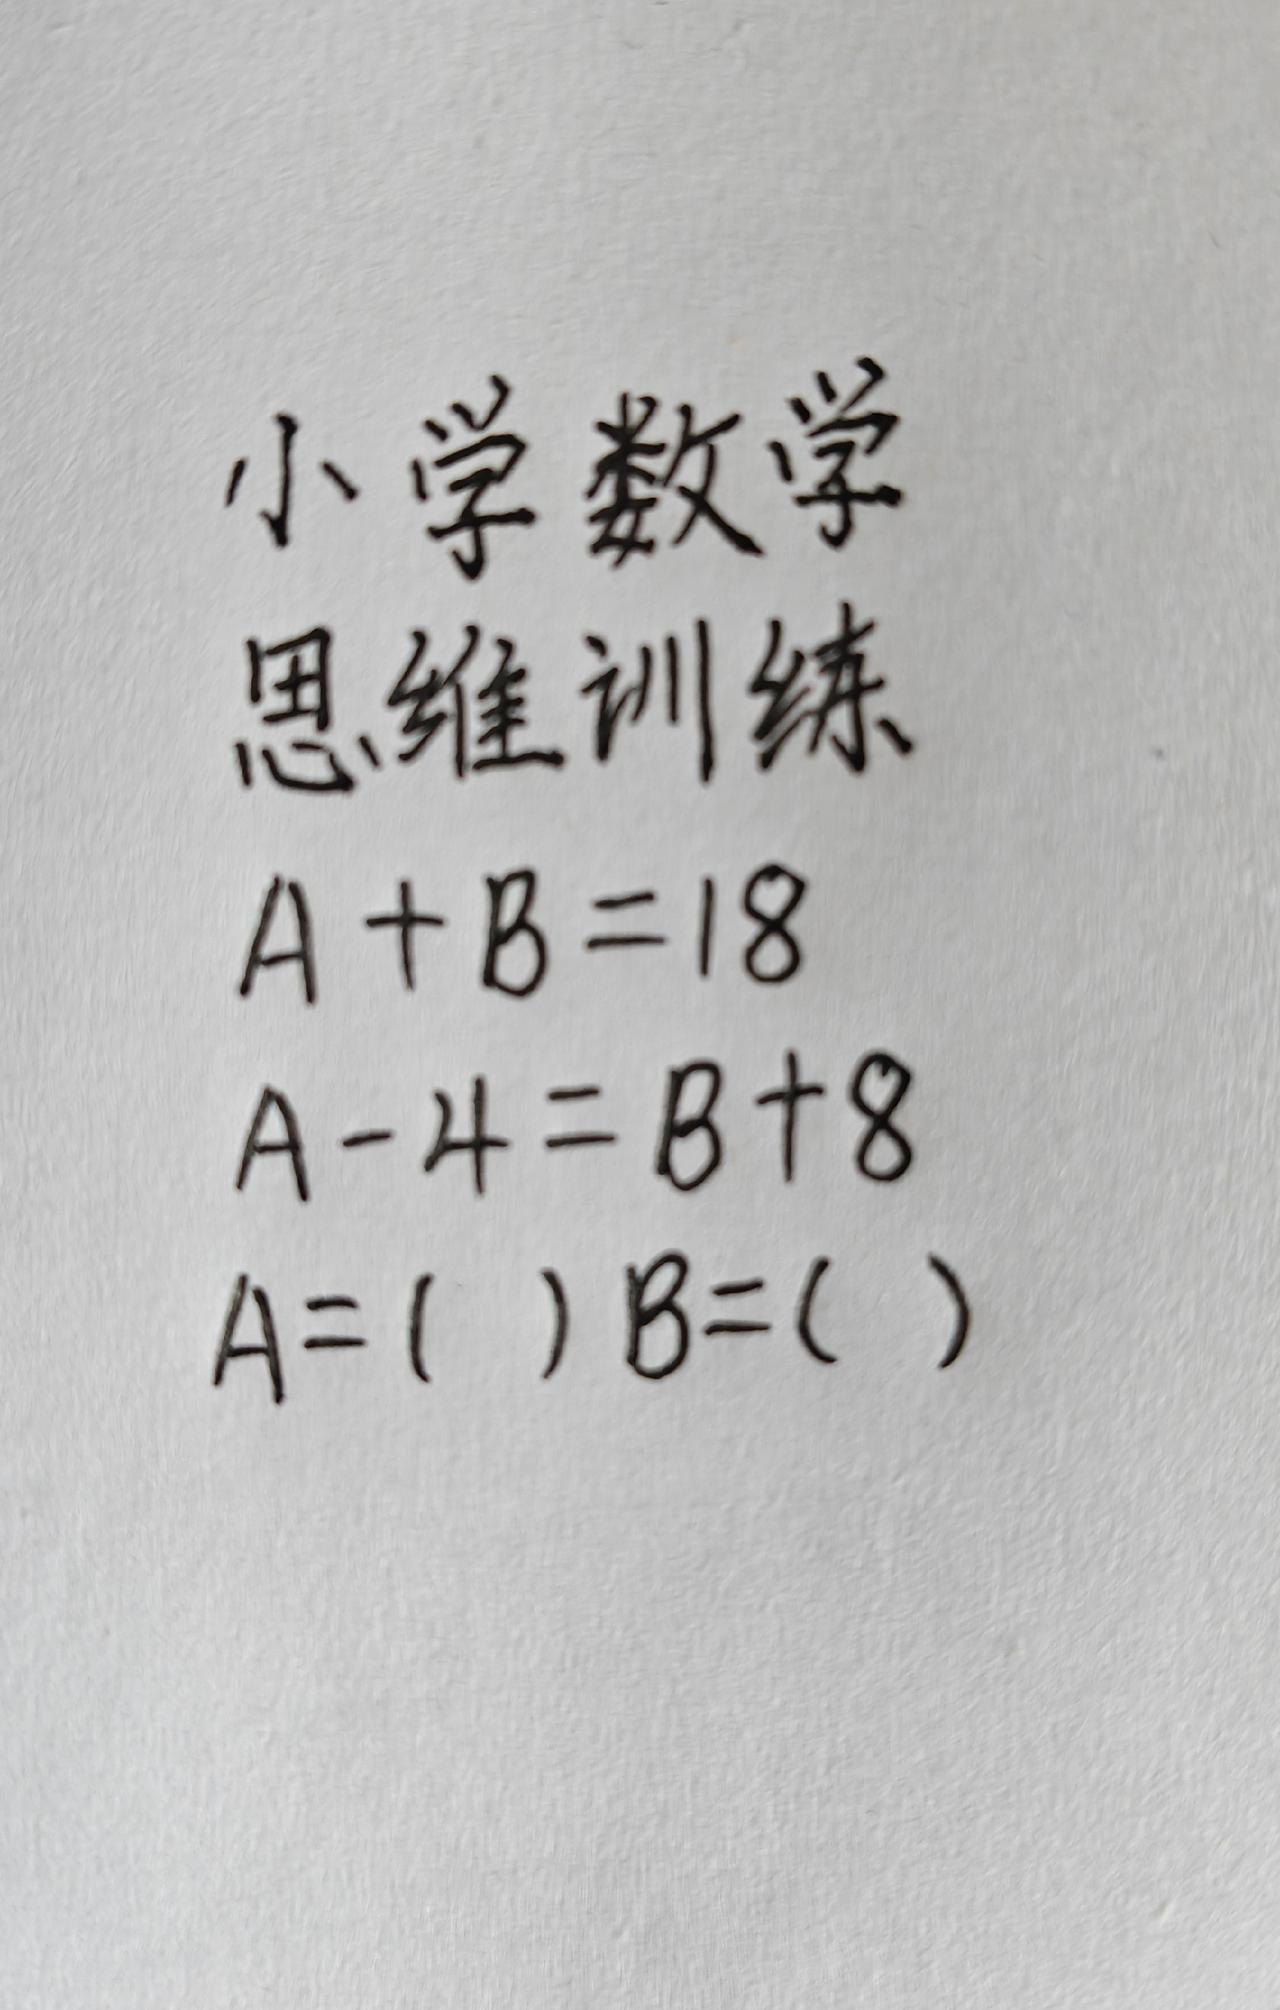 小学数学
思维训练
A+B=18
A-4=B+8
A=( ) B=( )